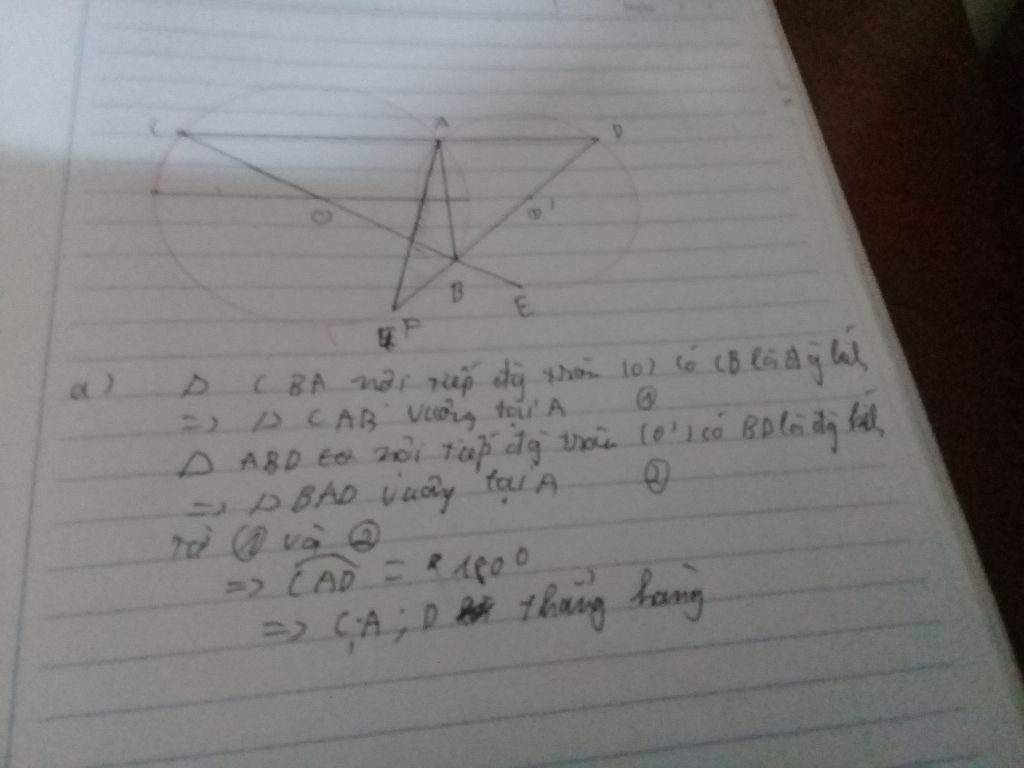 C A D
O O'
B E
F
a) Δ CBA nội tiếp đg tròn (O) có CB là đg kính
=> Δ CAB vuông tại A ①
Δ ABD nội tiếp đg tròn (O') có BD là đg kính
=> Δ BAD vuông tại A ②
Từ ① và ②
=> CAD = 180°
=> C; A; D thẳng hàng